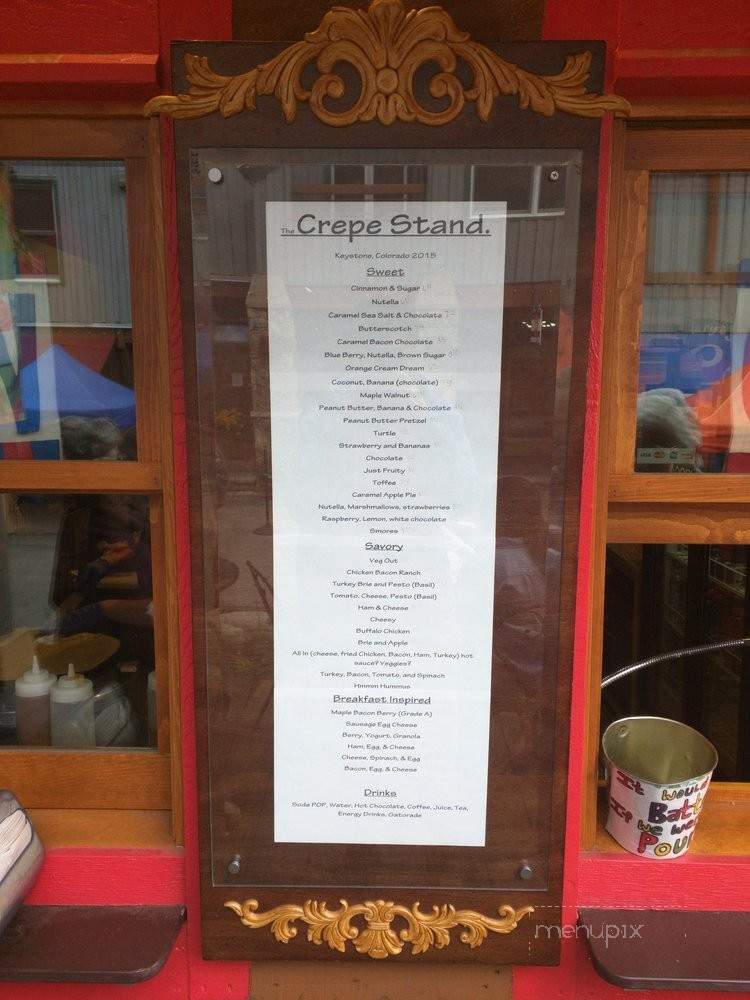 The Crepe Stand.
Keystone, Colorado 2015
Sweet
Cinnamon & Sugar
Nutella
Caramel Sea Salt & Chocolate
Butterscotch
Caramel Bacon Chocolate
Blue Berry, Nutella, Brown Sugar
Orange Cream Dream
Coconut, Banana (chocolate)
Maple Walnut
Peanut Butter, Banana & Chocolate
Peanut Butter Pretzel
Turtle
Strawberry and Bananas
Chocolate
Just Fruity
Toffee
Caramel Apple Pie
Nutella, Marshmallows, strawberries
Raspberry, Lemon, white chocolate
Smores
Savory
Veg Out
Chicken Bacon Ranch
Turkey Brie and Pesto (Basil)
Tomato, Cheese, Pesto (Basil)
Ham & Cheese
Cheesy
Buffalo Chicken
Brie and Apple
All In (cheese, fried Chicken, Bacon, Ham, Turkey) hot
sauce? Veggies?
Turkey, Bacon, Tomato, and Spinach
Hmmm Hummus
Breakfast Inspired
Maple Bacon Berry (Grade A)
Sausage Egg Cheese
Berry, Yogurt, Granola
Ham, Egg, & Cheese
Cheese, Spinach, & Egg
Bacon, Egg, & Cheese
Drinks
Soda POP, Water, Hot Chocolate, Coffee, Juice, Tea,
Energy Drinks, Gatorade
VISA
It would
Batt
If we we
Pou
menupix